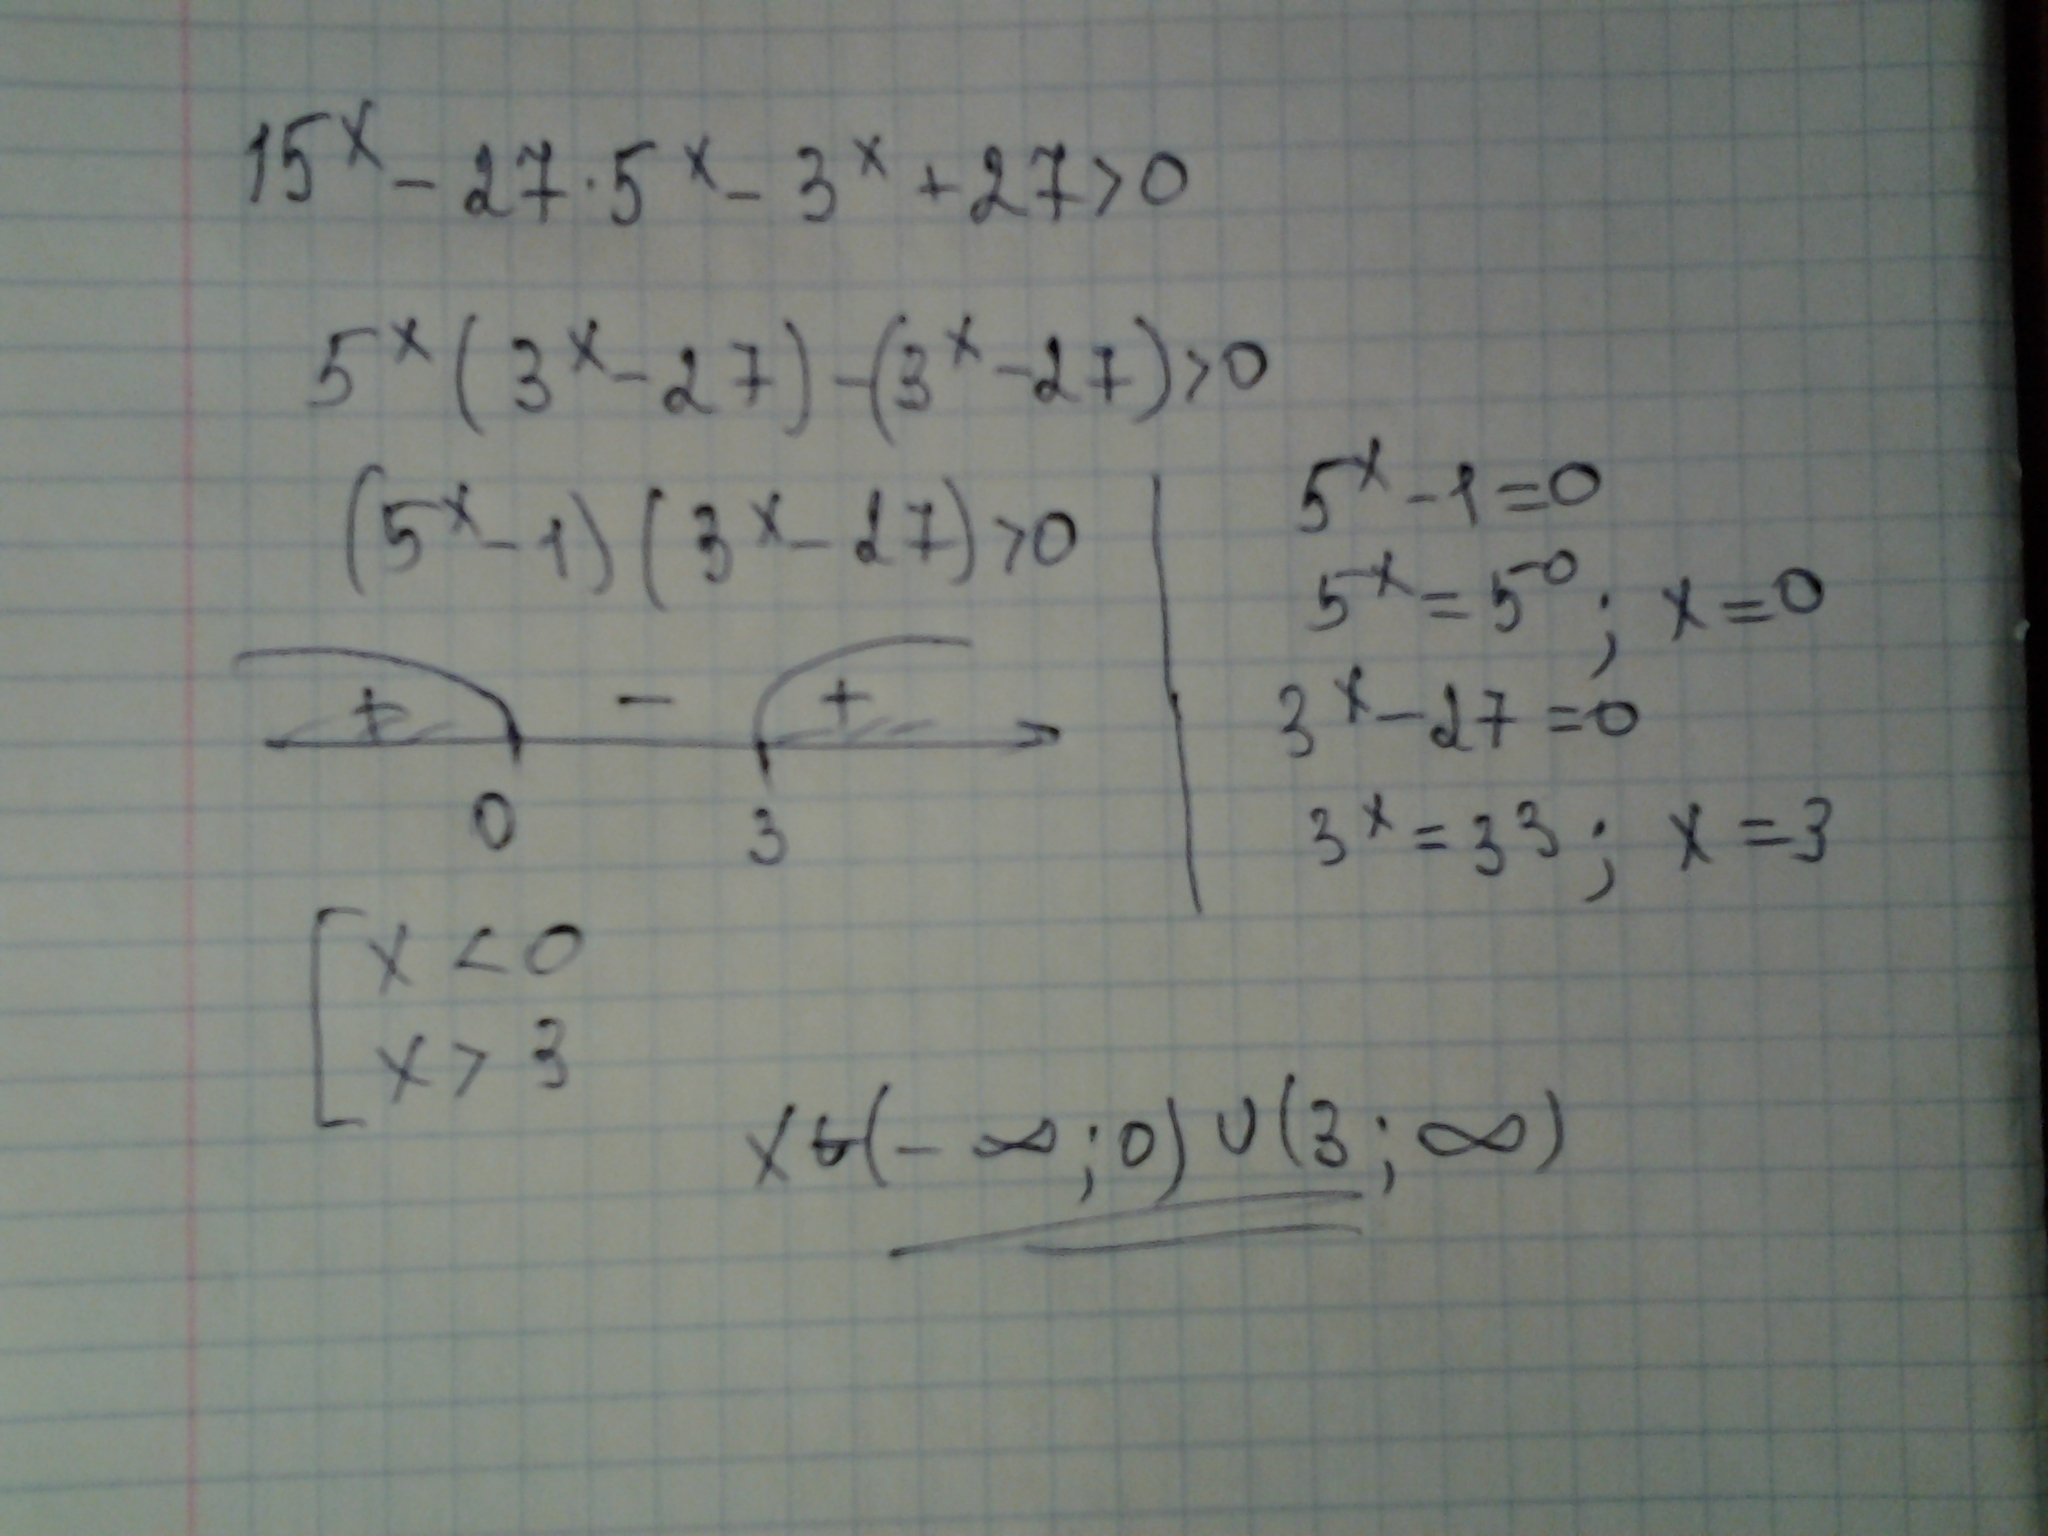 15ˣ - 27·5ˣ - 3ˣ + 27 > 0
5ˣ(3ˣ - 27) - (3ˣ - 27) > 0
(5ˣ - 1)(3ˣ - 27) > 0
+ - +
0 3
5ˣ - 1 = 0
5ˣ = 5⁰; x = 0
3ˣ - 27 = 0
3ˣ = 3³; x = 3
[ x < 0
x > 3
x ∈ (-∞; 0) ∪ (3; ∞)